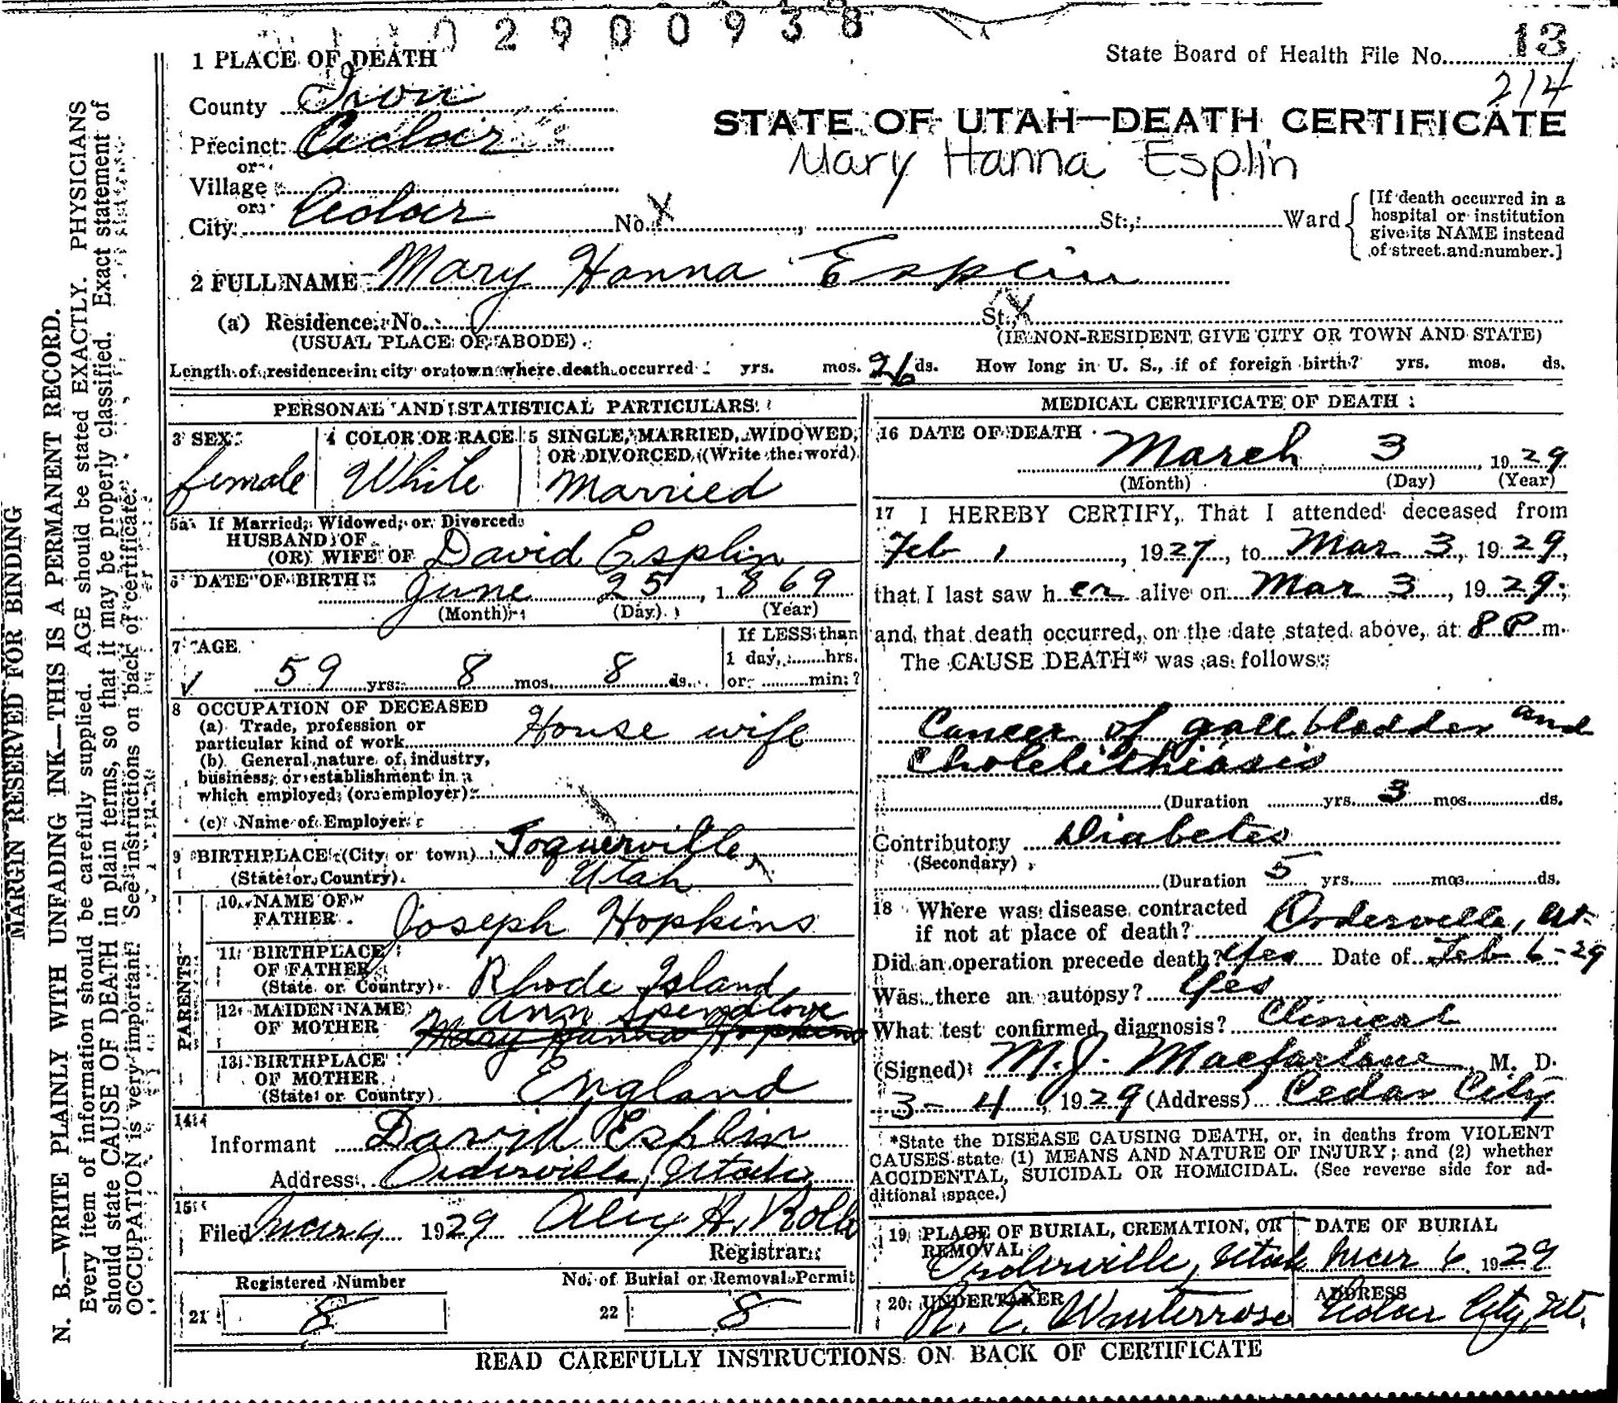 02900938
State Board of Health File No. 13
214
1 PLACE OF DEATH
County Iron
Precinct Cedar
or
Village
or
City Cedar No. X St., Ward
[If death occurred in a
hospital or institution
give its NAME instead
of street and number.]
STATE OF UTAH—DEATH CERTIFICATE
Mary Hanna Esplin
2 FULL NAME Mary Hanna Esplin
(a) Residence. No. St. X
(USUAL PLACE OF ABODE)
(IF NON-RESIDENT GIVE CITY OR TOWN AND STATE)
Length of residence in city or town where death occurred yrs. mos. 26 ds. How long in U. S., if of foreign birth? yrs. mos. ds.
PERSONAL AND STATISTICAL PARTICULARS
3 SEX
female
4 COLOR OR RACE
White
5 SINGLE, MARRIED, WIDOWED,
OR DIVORCED, (Write the word)
Married
5a If Married, Widowed, or Divorced
HUSBAND OF
(OR) WIFE OF David Esplin
6 DATE OF BIRTH
June 25, 1869
(Month) (Day) (Year)
7 AGE
59 yrs. 8 mos. 8 ds.
If LESS than
1 day, ......hrs.
or ......min.?
8 OCCUPATION OF DECEASED
(a) Trade, profession or
particular kind of work House wife
(b) General nature of industry,
business, or establishment in
which employed (or employer)
(c) Name of Employer
9 BIRTHPLACE (City or town) Toquerville
(State or Country) Utah
PARENTS
10 NAME OF
FATHER Joseph Hopkins
11 BIRTHPLACE
OF FATHER
(State or Country) Rhode Island
12 MAIDEN NAME
OF MOTHER Ann Spendlove
Mary Hanna Hopkins
13 BIRTHPLACE
OF MOTHER
(State or Country) England
14
Informant David Esplin
Address Orderville, Utah
15
Filed Mar 4 1929 Alex H. Rollo
Registrar
Registered Number
21 8
No. of Burial or Removal Permit
22 8
MEDICAL CERTIFICATE OF DEATH
16 DATE OF DEATH
March 3, 1929
(Month) (Day) (Year)
17 I HEREBY CERTIFY, That I attended deceased from
Feb 1, 1927, to Mar 3, 1929,
that I last saw her alive on Mar 3, 1929,
and that death occurred, on the date stated above, at 8 P m.
The CAUSE DEATH* was as follows:
Cancer of gall bladder and
Cholelithiasis
(Duration yrs. 3 mos. ds.
Contributory Diabetes
(Secondary)
(Duration 5 yrs. mos. ds.
18 Where was disease contracted
if not at place of death? Orderville, Ut.
Did an operation precede death? Yes Date of Feb 6-29
Was there an autopsy? Yes
What test confirmed diagnosis? Clinical
(Signed) M. J. Macfarlane, M. D.
3-4, 1929 (Address) Cedar City
*State the DISEASE CAUSING DEATH, or, in deaths from VIOLENT
CAUSES state (1) MEANS AND NATURE OF INJURY; and (2) whether
ACCIDENTAL, SUICIDAL OR HOMICIDAL. (See reverse side for ad-
ditional space.)
19 PLACE OF BURIAL, CREMATION, OR
REMOVAL
Orderville, Utah
DATE OF BURIAL
Mar 6 1929
20 UNDERTAKER
Winterrose
ADDRESS
Cedar City, Ut.
READ CAREFULLY INSTRUCTIONS ON BACK OF CERTIFICATE
MARGIN RESERVED FOR BINDING
N. B.—WRITE PLAINLY WITH UNFADING INK—THIS IS A PERMANENT RECORD.
Every item of information should be carefully supplied. AGE should be stated EXACTLY. PHYSICIANS
should state CAUSE OF DEATH in plain terms, so that it may be properly classified. Exact statement of
OCCUPATION is very important. See instructions on back of certificate.